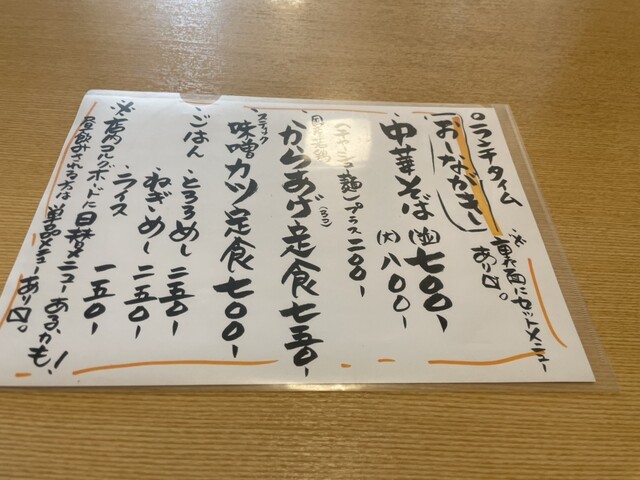 ○ランチタイム
(おしながき)
※裏面にセットメニュー
あり〼。
中華そば(並)七〇〇-
(大)八〇〇-
(チャーシュー麺)プラス二〇〇-
からあげ定食七五〇-
(5コ)
スティック
味噌カツ定食七〇〇-
・ごはん
とろろめし 二五〇-
ねぎめし 二五〇-
ライス 一五〇-
※店内コルクボードに日替メニューあるかも!
昼飲みされる方は単品メニューあり〼。